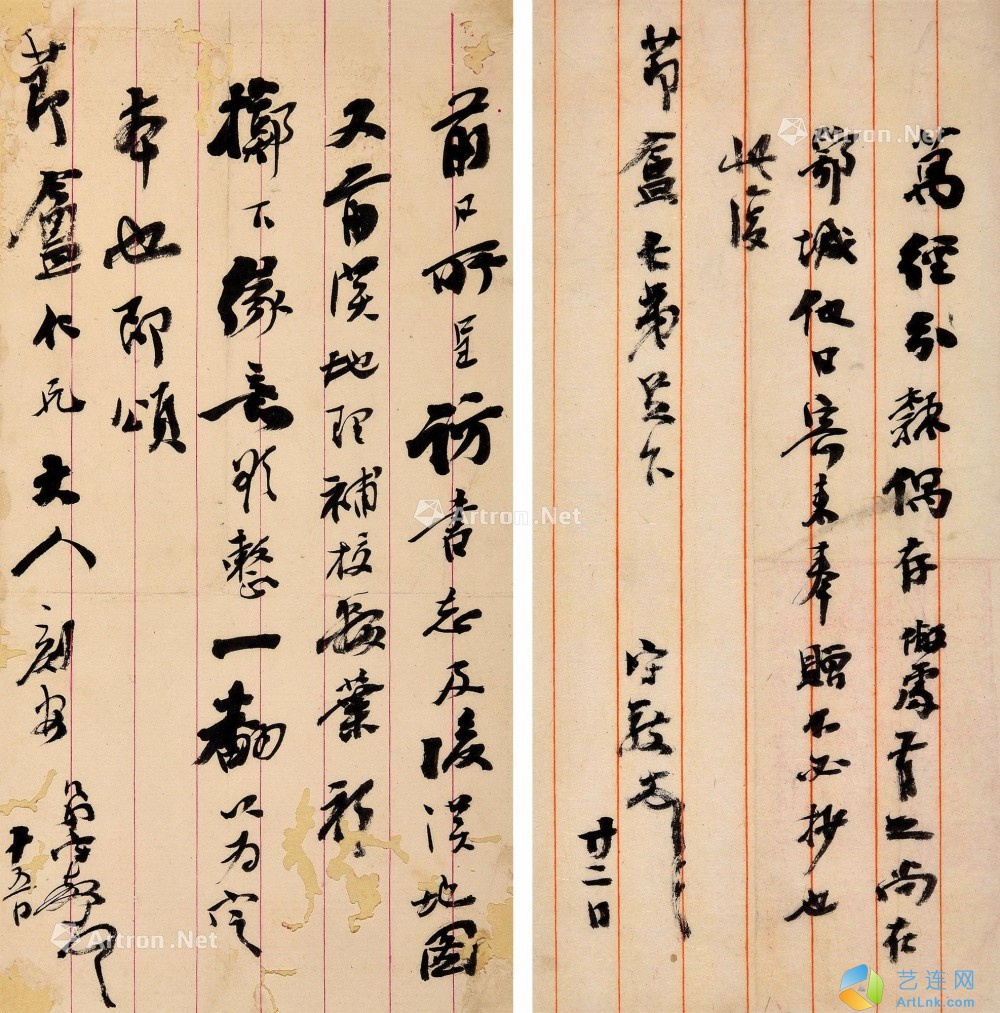 萬經分隸偶存敝處有之尚在
鄂城他日寄來奉贈不必抄也
此復
節盦七弟足下
守敬
廿二日
前日所呈訪書志及後漢地圖
又前漢地理補校數葉祈
擲下緣意欲整一翻以為定
本也即頌
節盦仁兄大人刻安
弟守敬
十五日
Artron.Net
Artron.Net
Artron.Net
Artron.Net
艺连网
ArtLnk.com